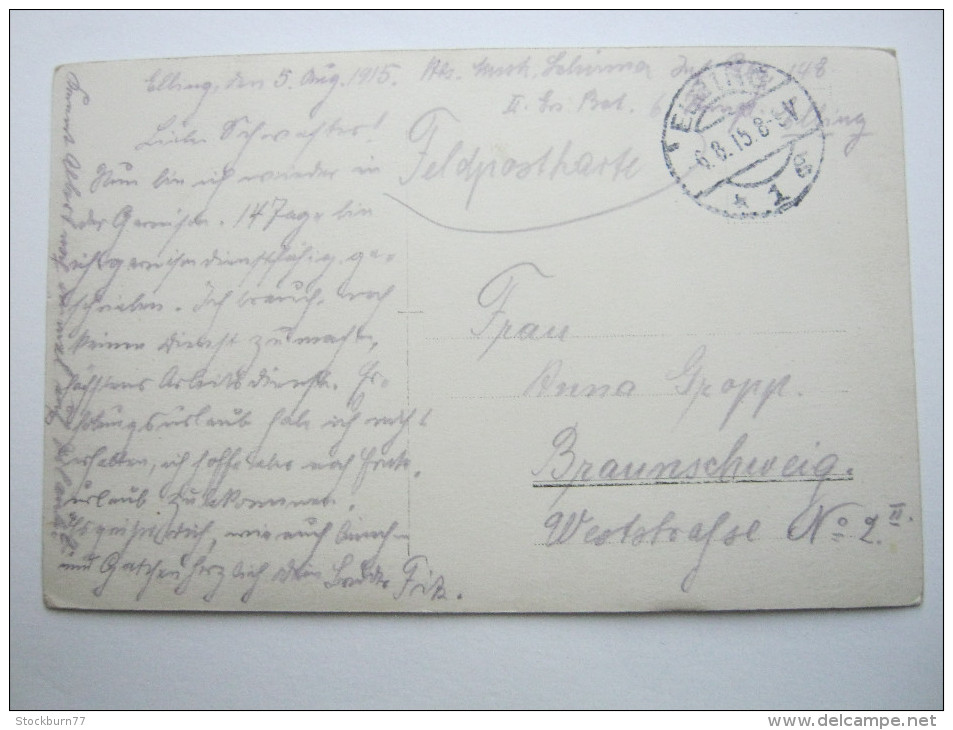 Elbing, den 5. Aug. 1915.
Liebe Schwester!
Nun bin ich wieder in
der Garnison. 14 Tage bin
ich garnisondienstfähig ge-
schrieben. Ich brauch noch
keinen Dienst zu machen,
höchstens Arbeitsdienst. Er-
holungsurlaub habe ich nicht
erhalten, ich hoffe aber noch
urlaub zu bekommen.
Es grüßt Dich, wie auch
und herzlich Dein Bruder Fritz.
Abs. Musk. Inf. Reg. 148
II. Ers. Bat. 6 Elbing
Feldpostkarte
ELBING
6.8.15.8-9V
* 1 e
Frau
Anna Gropp.
Braunschweig.
Weststraße No 2 II.
Stockburn77
www.delcampe.net